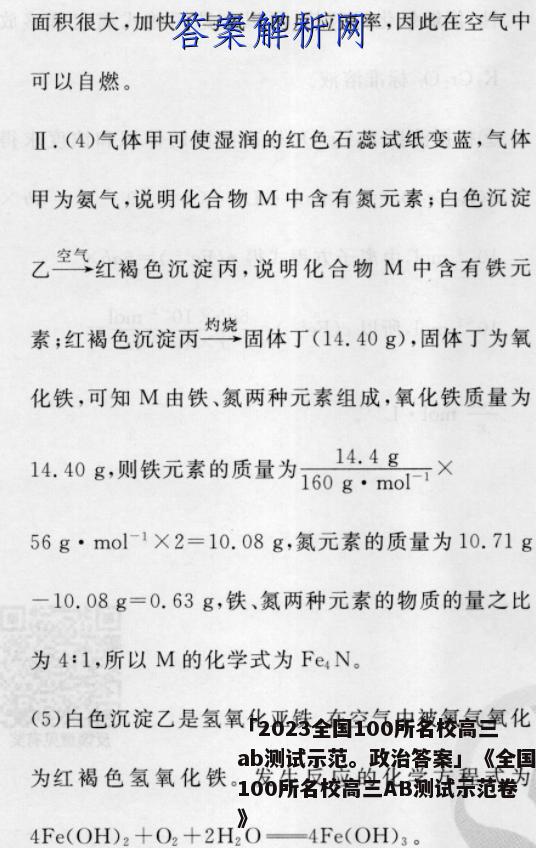 面积很大,加快了与氧气的反应速率,因此在空气中
答案解析网
可以自燃。
Ⅱ.(4)气体甲可使湿润的红色石蕊试纸变蓝,气体
甲为氨气,说明化合物 M 中含有氮元素;白色沉淀
乙—空气→红褐色沉淀丙,说明化合物 M 中含有铁元
素;红褐色沉淀丙—灼烧→固体丁(14.40 g),固体丁为氧
化铁,可知 M 由铁、氮两种元素组成,氧化铁质量为
14.40 g,则铁元素的质量为 14.4 g / 160 g·mol⁻¹ ×
56 g·mol⁻¹×2=10.08 g,氮元素的质量为 10.71 g
-10.08 g=0.63 g,铁、氮两种元素的物质的量之比
为 4∶1,所以 M 的化学式为 Fe₄N。
(5)白色沉淀乙是氢氧化亚铁,在空气中被氧气氧化
为红褐色氢氧化铁。发生反应的化学方程式为
4Fe(OH)₂+O₂+2H₂O══4Fe(OH)₃。
「2023全国100所名校高三
ab测试示范。政治答案」《全国
100所名校高三AB测试示范卷
》